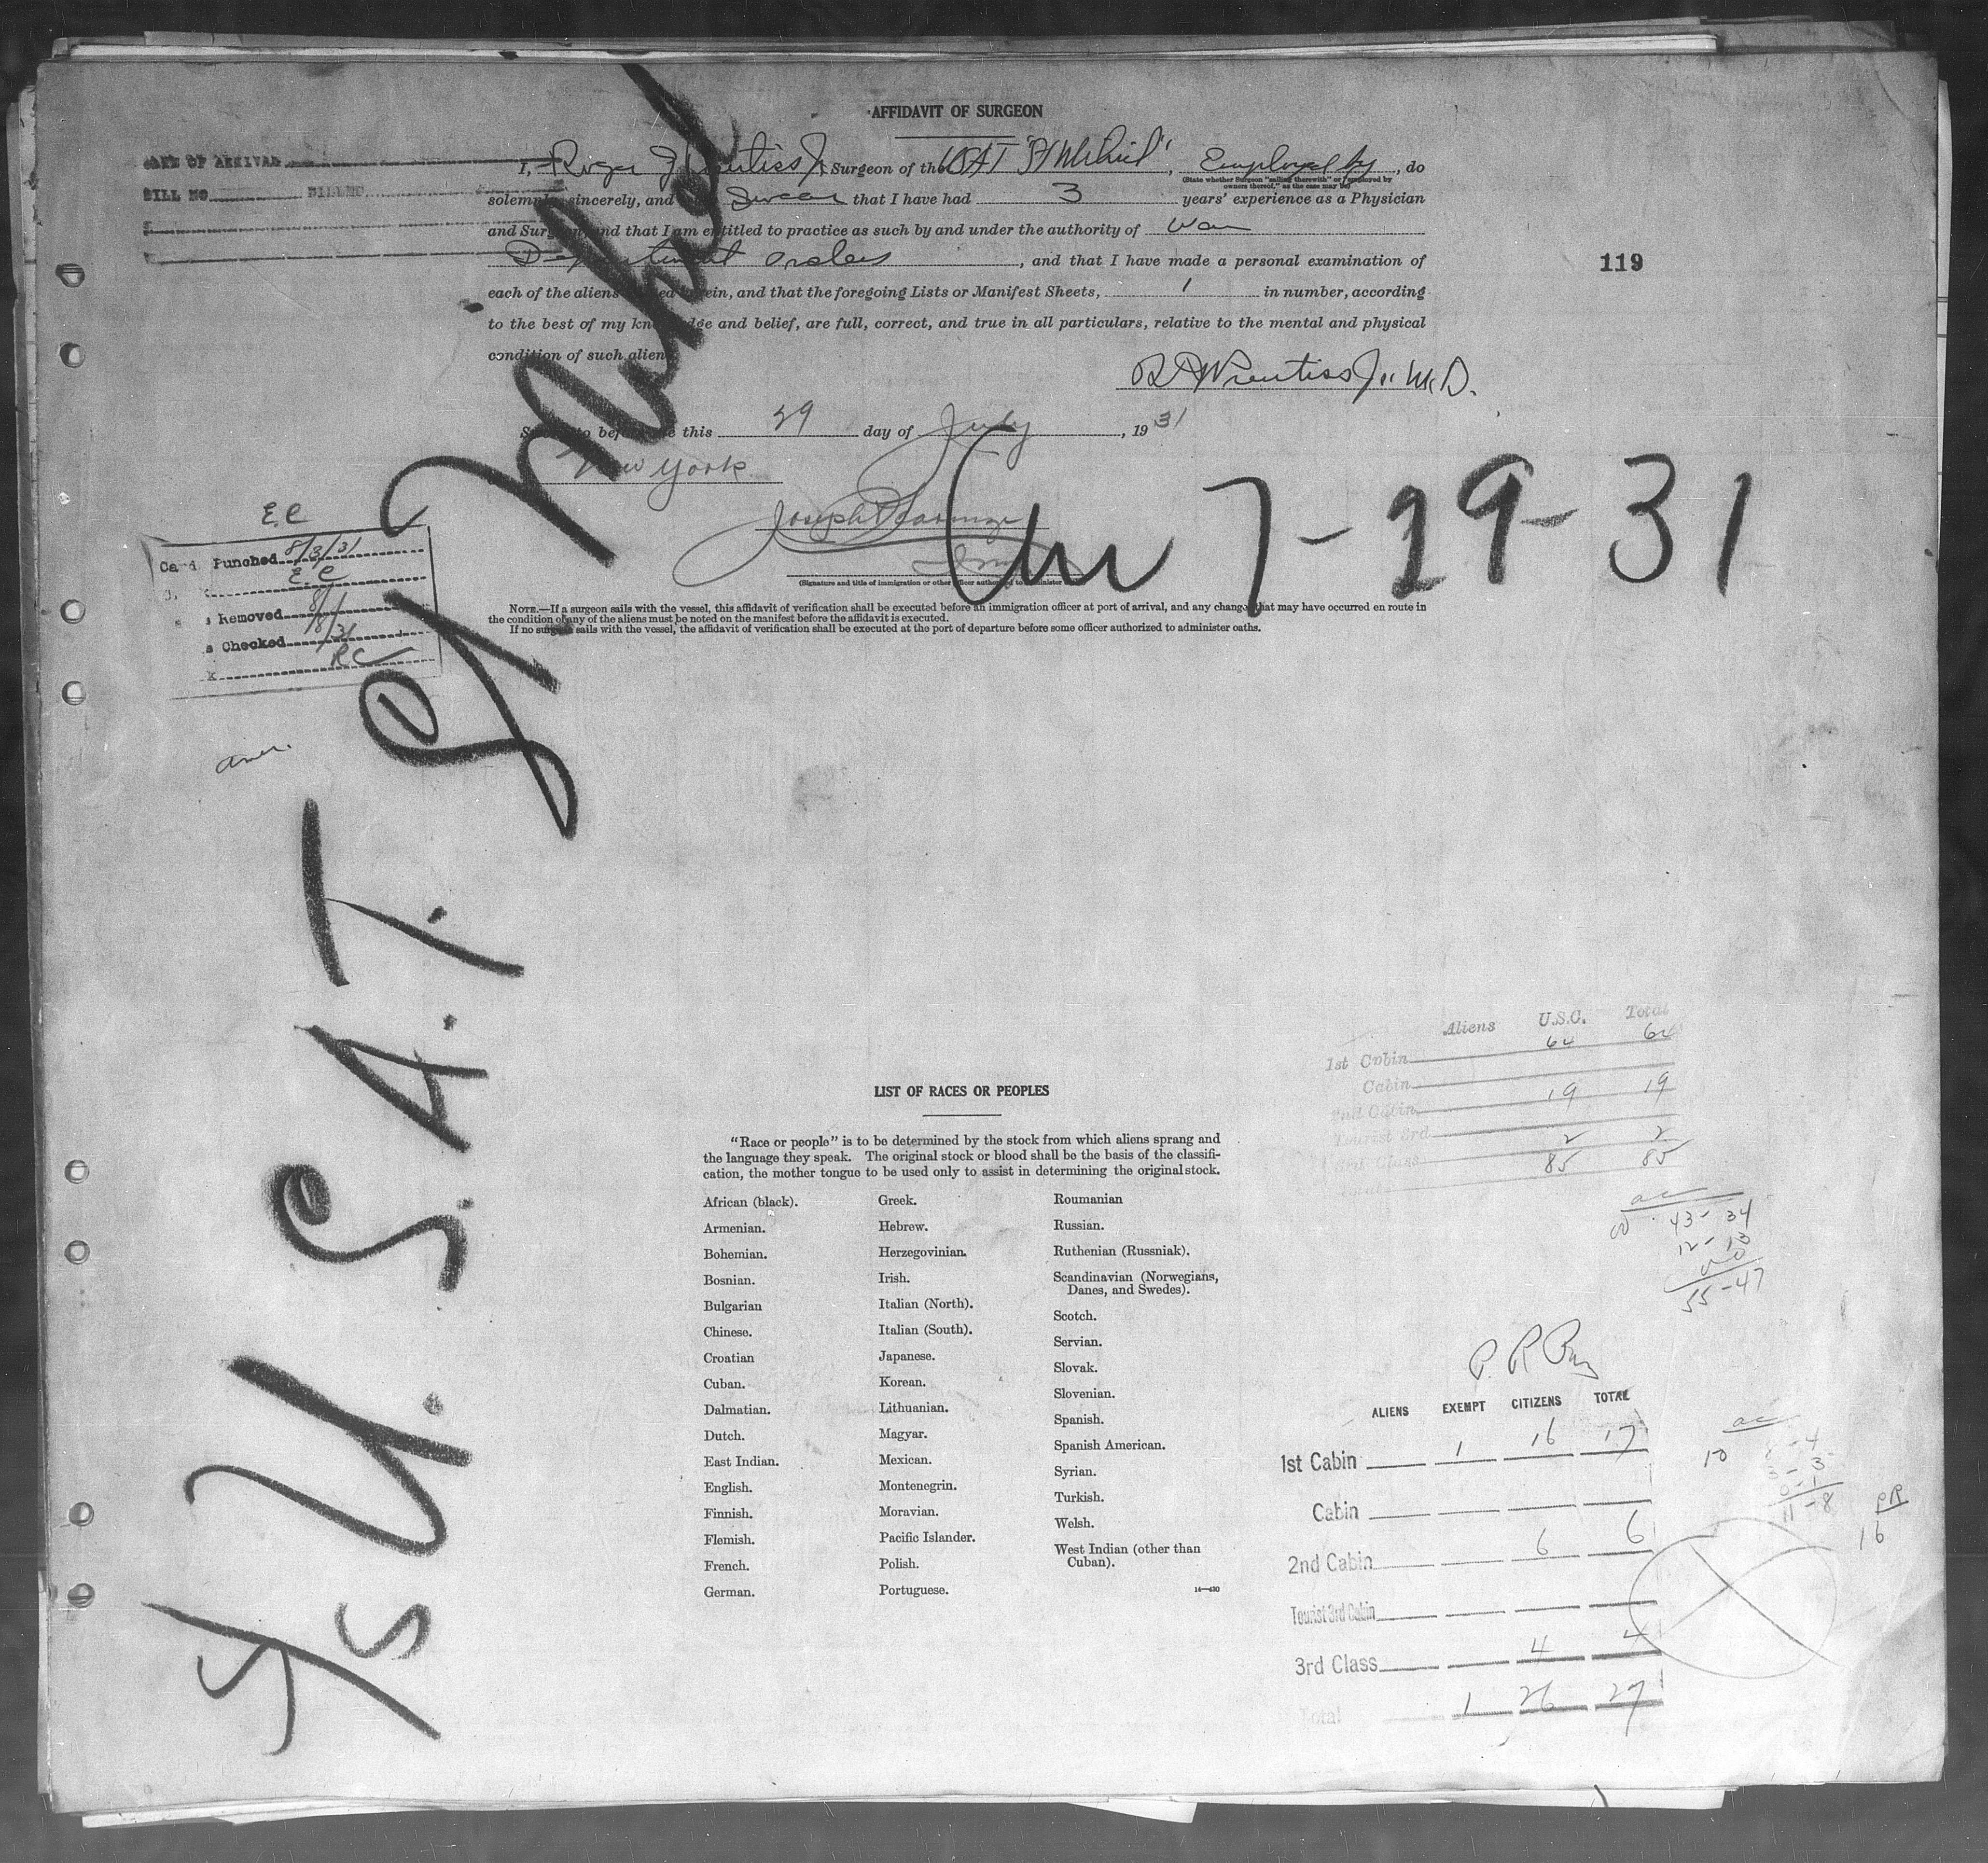 AFFIDAVIT OF SURGEON
DATE OF ARRIVAL
BILL NO. BILLED
I, Roger J Prentiss Jr Surgeon of the USAT "St Mihiel", Employed by, do
(State whether Surgeon "sailing therewith" or "employed by
owners thereof," as the case may be)
solemnly, sincerely, and swear that I have had 3 years' experience as a Physician
and Surgeon and that I am entitled to practice as such by and under the authority of War
Department orders, and that I have made a personal examination of
119
each of the aliens named herein, and that the foregoing Lists or Manifest Sheets, 1 in number, according
to the best of my knowledge and belief, are full, correct, and true in all particulars, relative to the mental and physical
condition of such aliens
R J Prentiss Jr. M.D.
Sworn to before me this 29 day of July, 1931
New York
7-29-31
E.C
Card Punched 8/3/31
E.C
s Removed 8/1
s Checked 8/31
RC
(Signature and title of immigration or other officer authorized to administer
NOTE.—If a surgeon sails with the vessel, this affidavit of verification shall be executed before an immigration officer at port of arrival, and any change that may have occurred en route in
the condition of any of the aliens must be noted on the manifest before the affidavit is executed.
If no surgeon sails with the vessel, the affidavit of verification shall be executed at the port of departure before some officer authorized to administer oaths.
U.S.A.T. St Mihiel
Aliens U.S.C. Total
1st Cabin 64 64
Cabin
2nd Cabin 19 19
Tourist 3rd
3rd Class 2 2
Total 85 85
ac
43-34
12-13
55-47
LIST OF RACES OR PEOPLES
"Race or people" is to be determined by the stock from which aliens sprang and
the language they speak. The original stock or blood shall be the basis of the classifi-
cation, the mother tongue to be used only to assist in determining the original stock.
African (black).
Armenian.
Bohemian.
Bosnian.
Bulgarian
Chinese.
Croatian
Cuban.
Dalmatian.
Dutch.
East Indian.
English.
Finnish.
Flemish.
French.
German.
Greek.
Hebrew.
Herzegovinian.
Irish.
Italian (North).
Italian (South).
Japanese.
Korean.
Lithuanian.
Magyar.
Mexican.
Montenegrin.
Moravian.
Pacific Islander.
Polish.
Portuguese.
Roumanian
Russian.
Ruthenian (Russniak).
Scandinavian (Norwegians,
Danes, and Swedes).
Scotch.
Servian.
Slovak.
Slovenian.
Spanish.
Spanish American.
Syrian.
Turkish.
Welsh.
West Indian (other than
Cuban).
14—430
ALIENS EXEMPT CITIZENS TOTAL
1st Cabin 1 16 17
Cabin
2nd Cabin 6 6
Tourist 3rd Cabin
3rd Class 4 4
Total 1 26 27
ac
10
11-8
PR
16